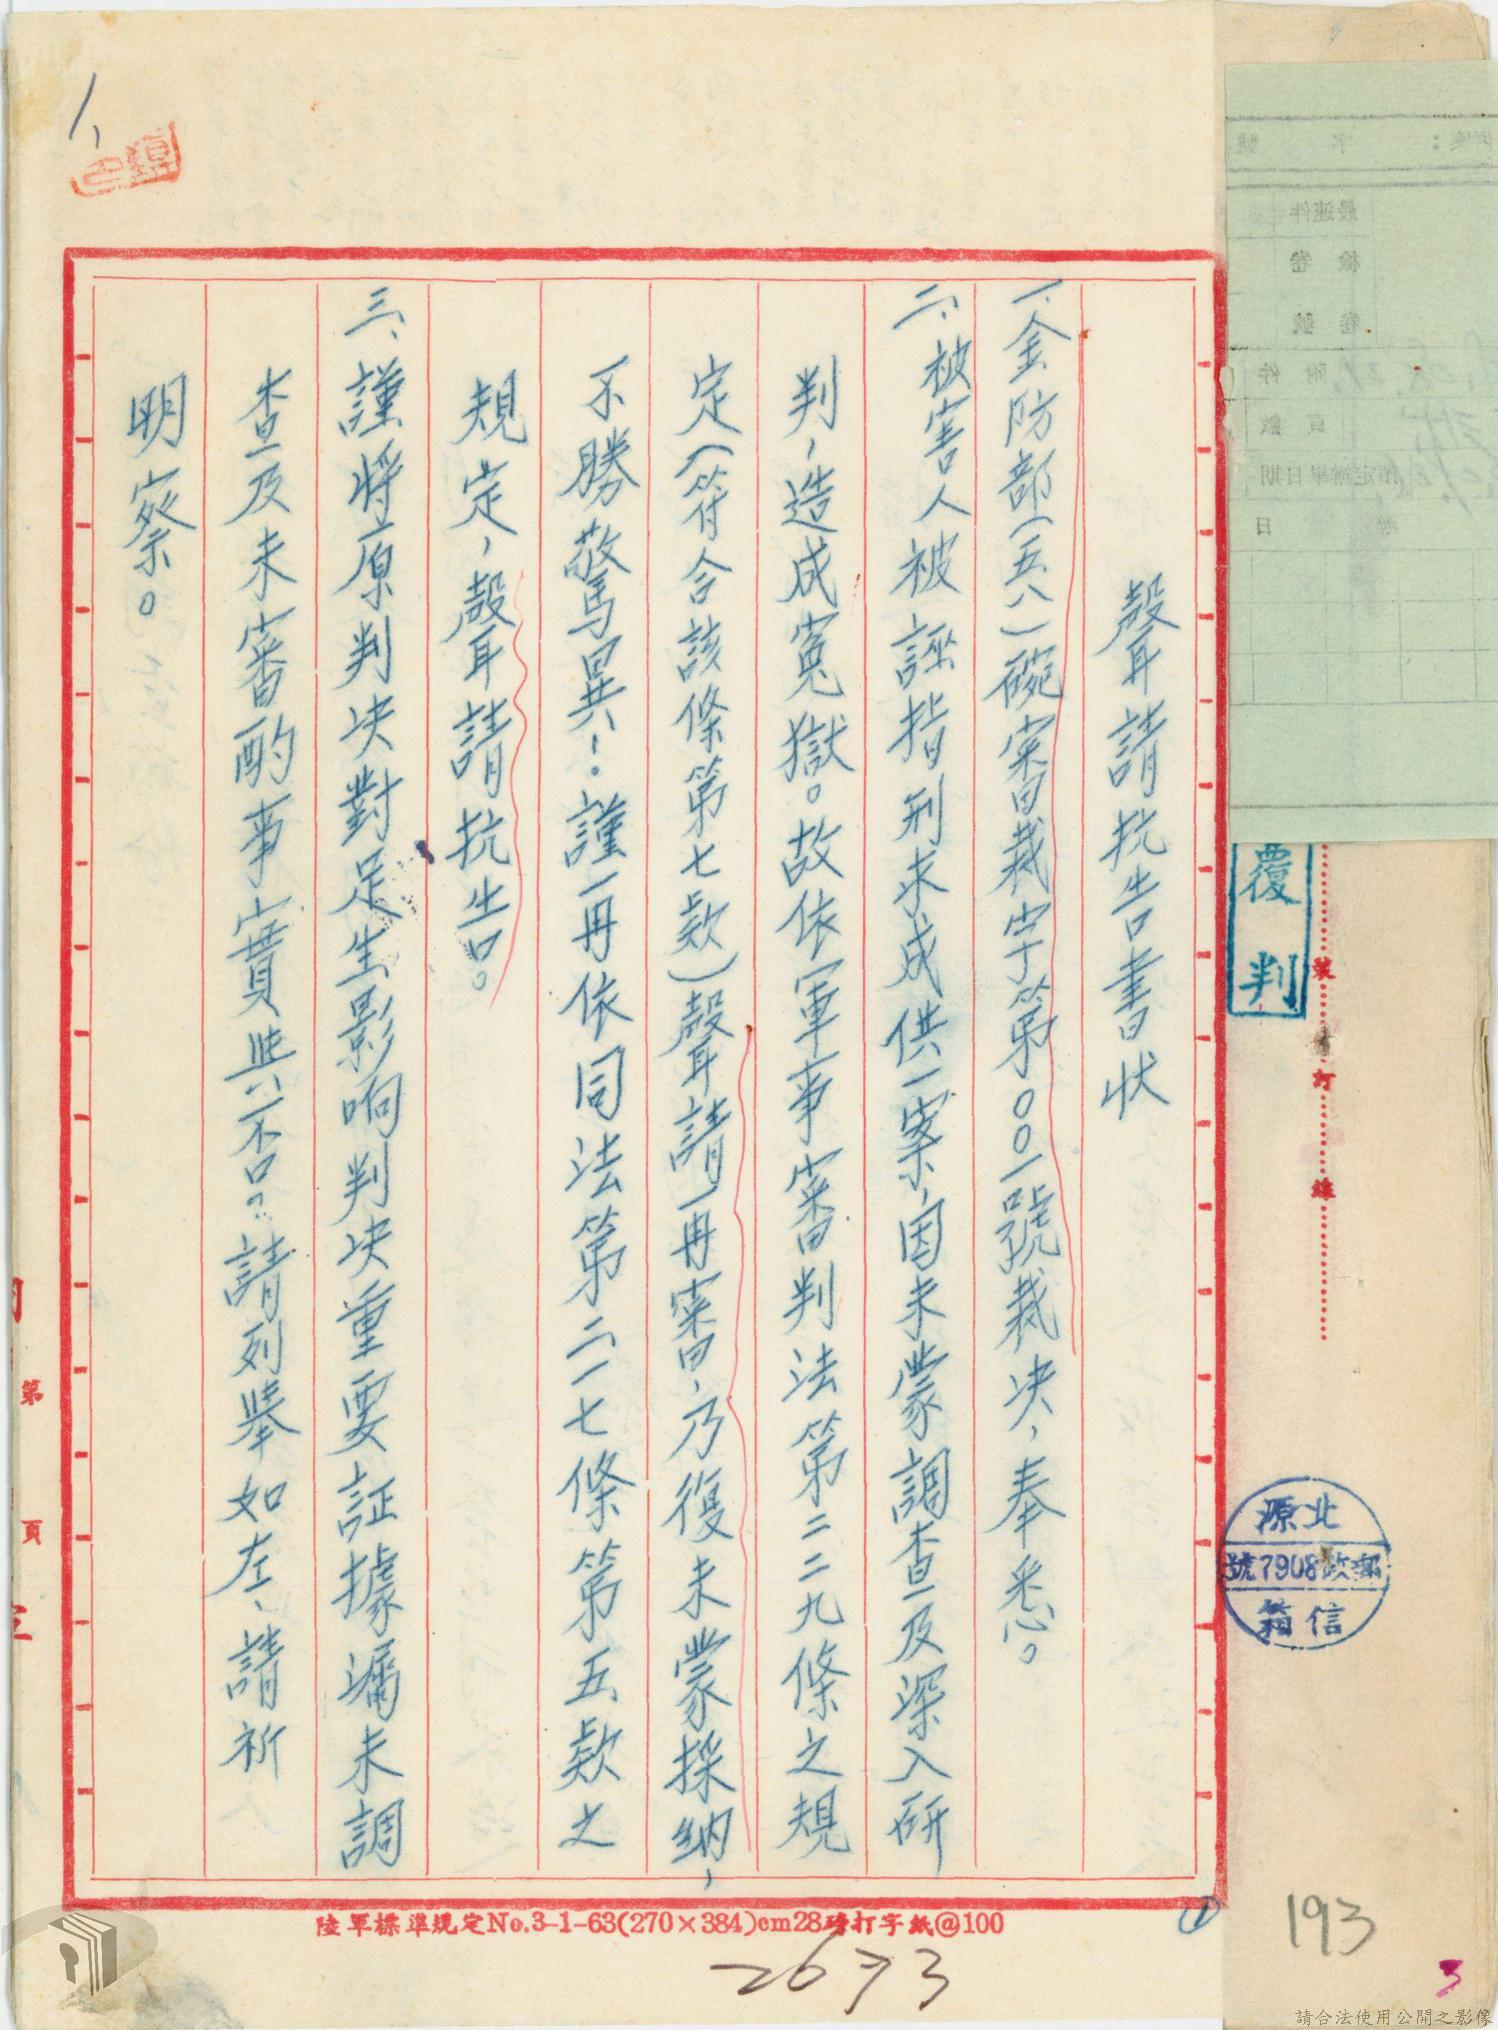 聲請抗告書狀
一、金防部(五八)碗審裁字第〇〇一號裁决，奉悉。
二、被害人被誣指刑求成供一案，因未蒙調查及深入研
判，造成寃獄。故依軍事審判法第二二九條之規
定(符合該條第七款)聲請再審，乃復未蒙採納，
不勝驚異！。謹再依同法第二一七條第五款之
規定，聲請抗告。
三、謹將原判决對足生影响判决重要証據漏未調
查及未審酌事實與否？請列舉如左、請祈
明察。
陸軍標準規定No.3-1-63(270×384)cm28磅打字紙@100
覆判
裝 訂 線
北源
郵政7908號
信箱
最速件
檢卷
卷號
附件
頁數
日
字 號
第 頁
1、
①
193
3
2673
請合法使用公開之影像